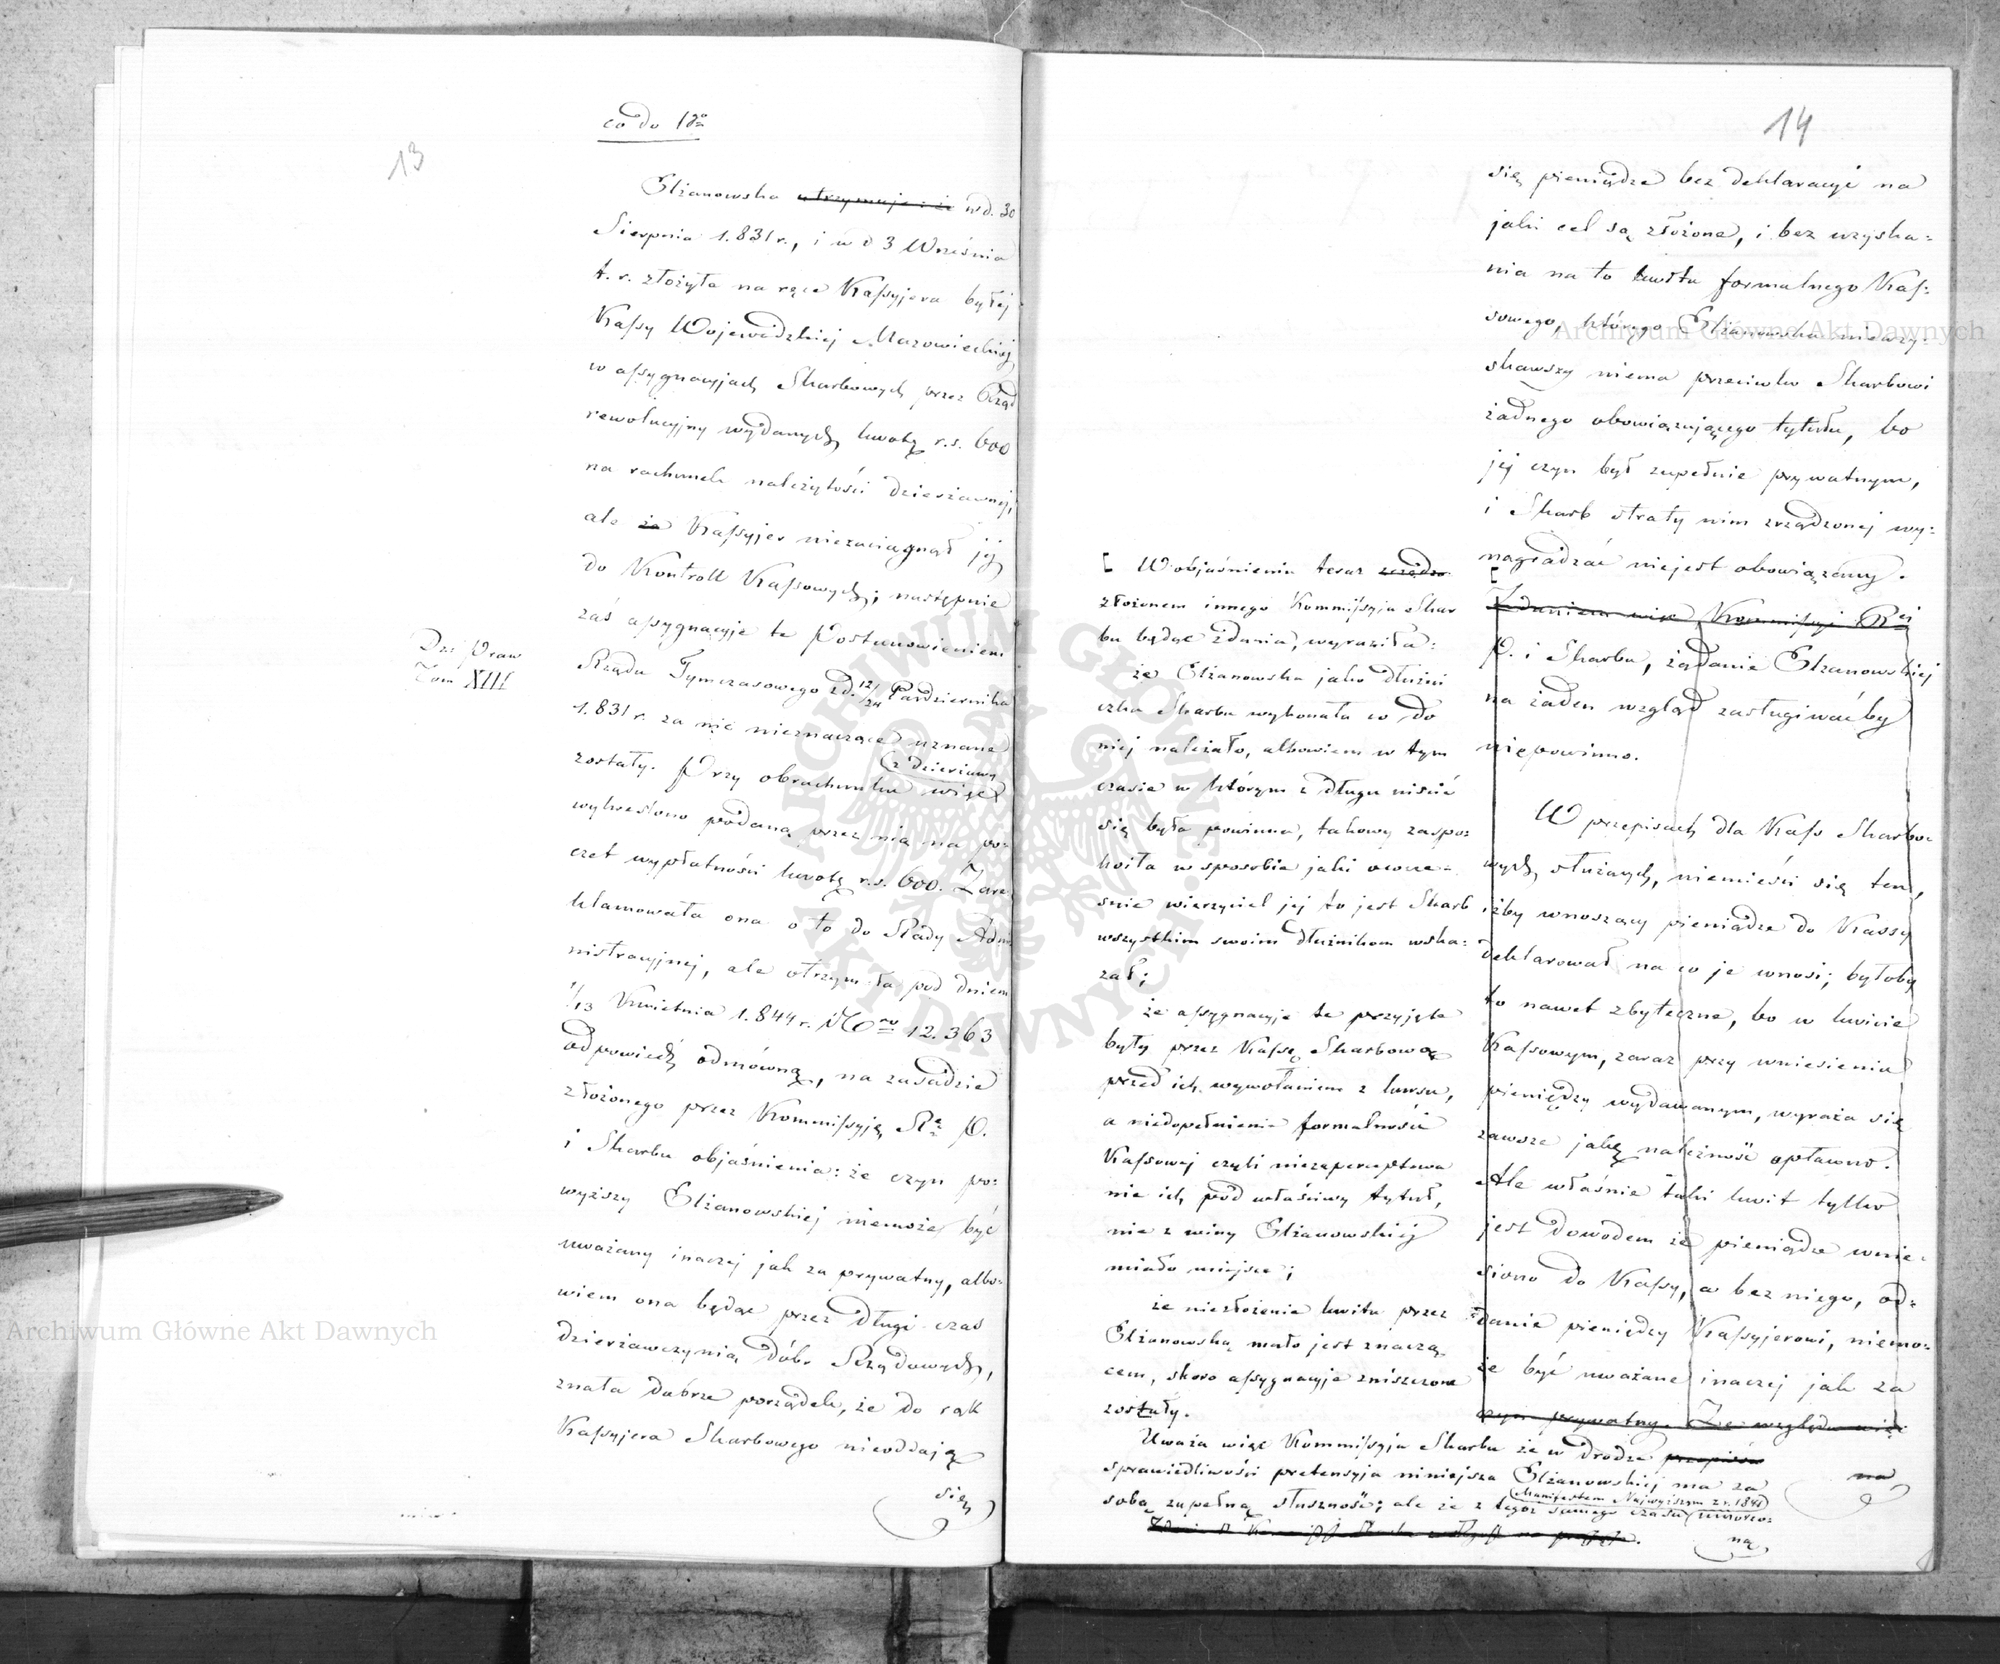 13
co do 18º
Elżanowska utrzymuje: że w d. 30
Sierpnia 1.831 r., i w d 3 Września
t. r. złożyła na ręce Kassyjera byłej
Kassy Wojewódzkiej Mazowieckiej
w assygnacyjach Skarbowych przez Rząd
rewolucyjny wydanych kwotę r.s. 600
na rachunek należytości dzierżawnej,
ale że Kassyjer niezaciągnął jej
do Kontroll Kassowych; następnie
zaś assygnacyje te Postanowieniem
Dz: Praw
Tom XIII
Rządu Tymczasowego z d. 12/24 Października
1.831 r. za nic nieznaczące uznane
zostały. Przy obrachunku z dzierżawy więc
wykreślono podaną przez nią na po-
czet wypłatności kwotę r.s. 600. Zare
klamowała ona o to do Rady Admi
nistracyjnej, ale otrzymała pod dniem
1/13 Kwietnia 1.844 r. Nro 12.363
odpowiedź odmówną, na zasadzie
złożonego przez Kommissyję Rą P.
i Skarbu objaśnienia: że czyn po-
wyższy Elżanowskiej niemoże być
uważany inaczej jak za prywatny, albo-
wiem ona będąc przez długi czas
dzierżawczynią dóbr Rządowych,
znała dobrze porządek, że do rąk
Kassyjera Skarbowego nieoddają
się
14
się pieniądze bez deklaracyi na
jaki cel są złożone, i bez uzyska-
nia na to kwitu formalnego Kas-
sowego, którego Elżanowska nieuzy-
skawszy niema przeciwko Skarbowi
żadnego obowiązującego tytułu, bo
jej czyn był zupełnie prywatnym,
i Skarb straty nim zrządzonej wy-
nagradzać niejest obowiązany.
Zdaniem więc Kommissyi Rej
P. i Skarbu, żądanie Elżanowskiej
na żaden wzgląd zasługiwaćby
niepowinno.
W przepisach dla Kass Skarbo-
wych służących, niemieści się ten,
iżby wnoszący pieniądze do Kassy
deklarował na co je wnosi; byłoby
to nawet zbyteczne, bo w kwicie
Kassowym, zaraz przy wniesieniu
pieniędzy wydawanym, wyraża się
zawsze jaką należność opłacono.
Ale właśnie taki kwit tylko
jest dowodem że pieniądze wnie-
siono do Kassy, a bez niego, od-
danie pieniędzy Kassyjerowi, niemo-
że być uważane inaczej jak za
czyn prywatny. Ze względu więc
na
[ W objaśnieniu teraz
złożonem innego Kommissyja Skar
bu będąc zdania, wyraziła:
że Elżanowska jako dłużni
czka Skarbu wykonała co do
niej należało, albowiem w tym
czasie w którym z długu uiścić
się była powinna, takowy zaspo-
koiła w sposobie jaki owcze-
śnie wierzyciel jej to jest Skarb
wszystkim swoim dłużnikom wska-
zał;
że assygnacyje te przyjęte
były przez Kassę Skarbową
przed ich wywołaniem z kursu,
a niedopełnienie formalności
Kassowej czyli niezaperceptowa
nie ich pod właściwy tytuł,
nie z winy Elżanowskiej
miało miejsce;
że niezłożenie kwitu przez
Elżanowską mało jest znaczą-
cem, skoro assygnacyje zniszczone
zostały.
Uważa więc Kommissyja Skarbu że w drodze przepisów
sprawiedliwości pretensyja niniejsza Elżanowskiej ma za
sobą zupełną słuszność; ale że z tegoż samego czasu Manifestem Najwyższym z r. 1841 umorzo-
ną